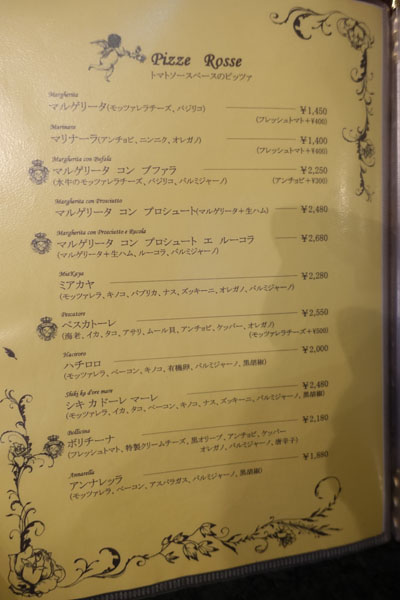 Pizze Rosse
トマトソースベースのピッツァ
Margherita
マルゲリータ(モッツァレラチーズ、バジリコ) ¥1,450
(フレッシュトマト+¥400)
Marinara
マリナーラ(アンチョビ、ニンニク、オレガノ) ¥1,400
(フレッシュトマト+¥400)
Margherita con Bufala
マルゲリータ コン ブファラ ¥2,250
(水牛のモッツァレラチーズ、バジリコ、パルミジャーノ) (アンチョビ+¥300)
Margherita con Prosciutto
マルゲリータ コン プロシュート(マルゲリータ+生ハム) ¥2,480
Margherita con Prosciutto e Rucola
マルゲリータ コン プロシュート エ ルーコラ ¥2,680
(マルゲリータ+生ハム、ルーコラ、パルミジャーノ)
MiaKaya
ミアカヤ ¥2,280
(モッツァレラ、キノコ、パプリカ、ナス、ズッキーニ、オレガノ、パルミジャーノ)
Pescatore
ペスカトーレ ¥2,550
(海老、イカ、タコ、アサリ、ムール貝、アンチョビ、ケッパー、オレガノ) (モッツァレラチーズ+¥500)
Haciroro
ハチロロ ¥2,000
(モッツァレラ、ベーコン、キノコ、有機卵、パルミジャーノ、黒胡椒)
シキ カ ドーレ マーレ ¥2,480
(モッツァレラ、イカ、タコ、ベーコン、キノコ、ナス、ズッキーニ、パルミジャーノ、黒胡椒)
Bollicina
ボリチーナ ¥2,180
(フレッシュトマト、特製クリームチーズ、黒オリーブ、アンチョビ、ケッパー
オレガノ、パルミジャーノ、唐辛子)
Annarella
アンナレッラ ¥1,860
(モッツァレラ、ベーコン、アスパラガス、パルミジャーノ、黒胡椒)